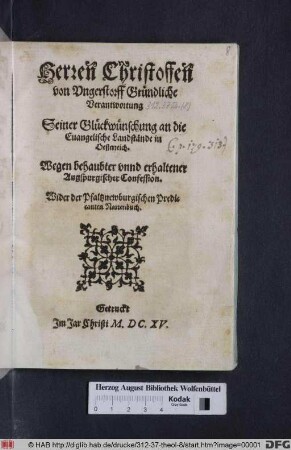 Herren Christoffen
von Vngerstorff Gründliche
Verantwortung
Seiner Glückwünschung an die
Euangelische Landstände in
Oesterreich.
Wegen behaubter vnnd erhaltener
Augspurgischer Confession.
Wider der Pfaltznewburgischen Predi-
canten Narrenbuch.
Getruckt
Im Jar Christi M. DC. XV.
Herzog August Bibliothek Wolfenbüttel
0 1 2 3 4
Kodak
© HAB http://diglib.hab.de/drucke/312-37-theol-6/start.htm?image=00001
DFG